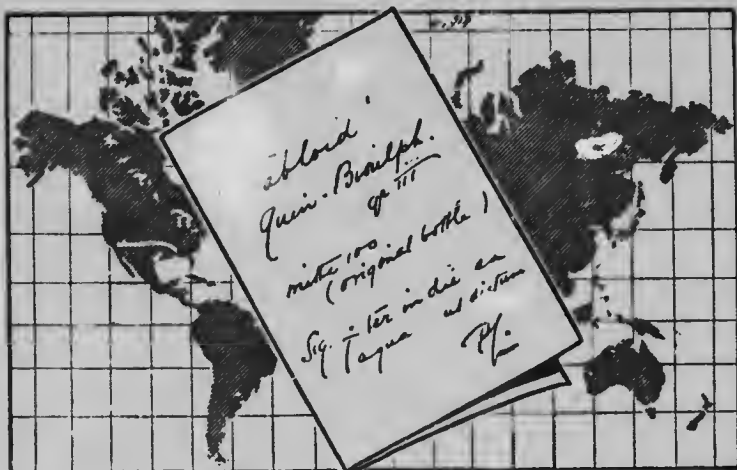 'abloid'
Quin. Bisulph.
gr III
mitte 100
(original bottle)
Sig. i ter in die ex
aqua ut dictum